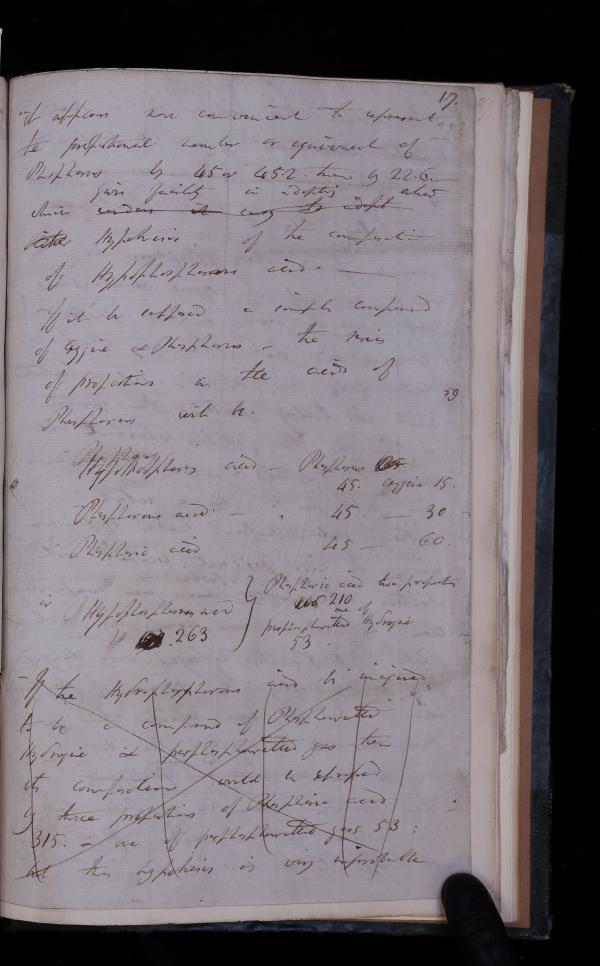 17.
223
It appears more convenient to represent
the proportional number or equivalent of
Phosphorus by 45 or 45.2. than by 22.6.
gives facility in adopting
which renders it easy to adopt
either Hypothesis of the composition
of Hypophosphorous acid. —
If it be supposed a simple compound
of oxygene & Phosphorus – the series
of proportions in the acids of
59
Phosphorus will be.
Hypophosphorus acid – Phosphorus
45. oxygene 15.
Phosphorous acid – 45 — 30.
Phosphoric acid 45 — 60.
or Hypophosphorous acid } Phosphoric acid two proportions
210
263
one of
perphosphuretted Hydrogene
53.
If the Hydrophosphorous acid be imagined
to be a compound of Phosphuretted
Hydrogene & perphosphuretted gas then
its composition would be
by three proportions of Phosphoric acid
315. & one of perphosphuretted gas 53;
but this hypothesis is very improbable